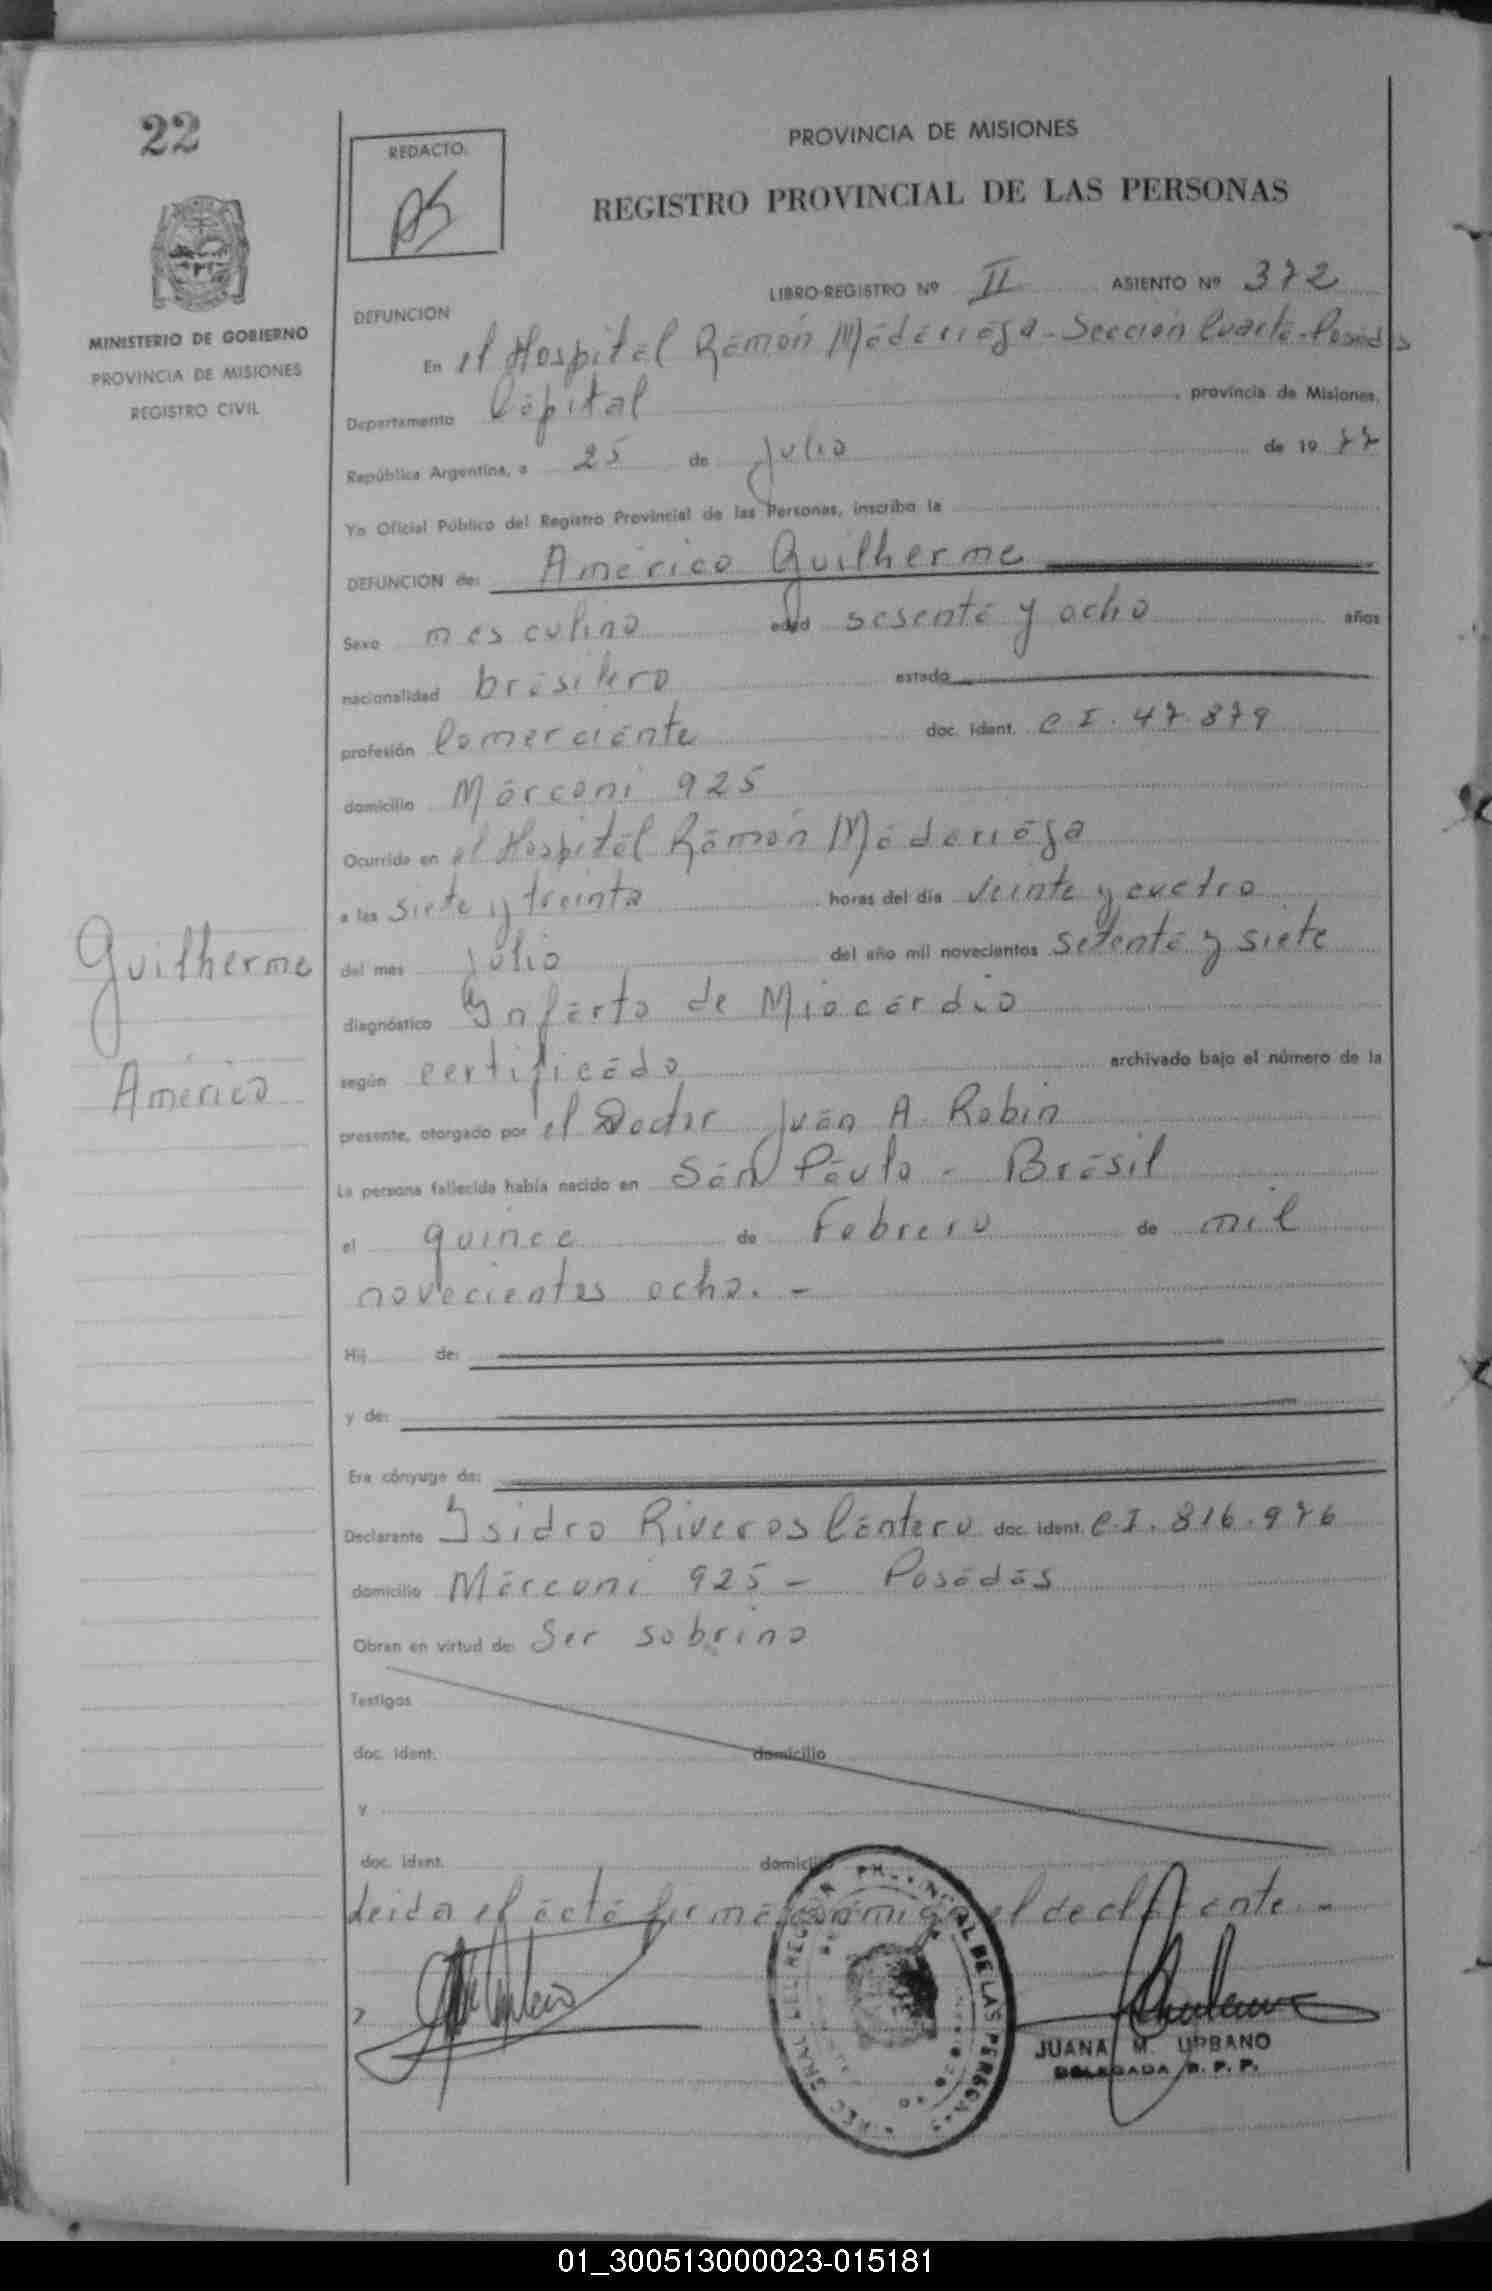 22
REDACTO.
PROVINCIA DE MISIONES
REGISTRO PROVINCIAL DE LAS PERSONAS
MINISTERIO DE GOBIERNO
PROVINCIA DE MISIONES
REGISTRO CIVIL
LIBRO-REGISTRO Nº II ASIENTO Nº 372
DEFUNCION
En el Hospital Ramón Madariaga - Sección Cuarta - Posadas
Departamento Capital, provincia de Misiones,
República Argentina, a 25 de Julio de 1977
Yo Oficial Público del Registro Provincial de las Personas, inscribo la
DEFUNCION de: Américo Guilherme
Sexo masculino edad sesenta y ocho años
nacionalidad brasilero estado
profesión Comerciante doc. ident. C I. 47.879
domicilio Marconi 925
Ocurrida en el Hospital Ramón Madariaga
a las siete y treinta horas del día veinte y cuatro
del mes Julio del año mil novecientos setenta y siete
diagnóstico Infarto de Miocardio
según certificado archivado bajo el número de la
presente, otorgado por el Doctor Juan A. Robin
La persona fallecida había nacido en San Paulo - Brasil
el quince de Febrero de mil
novecientos ocho. -
Hij de:
y de:
Era cónyuge de:
Declarante Isidro Riveros Cantero doc. ident. C.I. 816.976
domicilio Marconi 925 - Posadas
Obran en virtud de: Ser sobrino
Testigos
doc. ident. domicilio
y
doc. ident. domicilio
Leida el acta firma conmigo el declarante. -
Guilherme
Américo
JUANA M. URBANO
DELEGADA R. P. P.
01_300513000023-015181